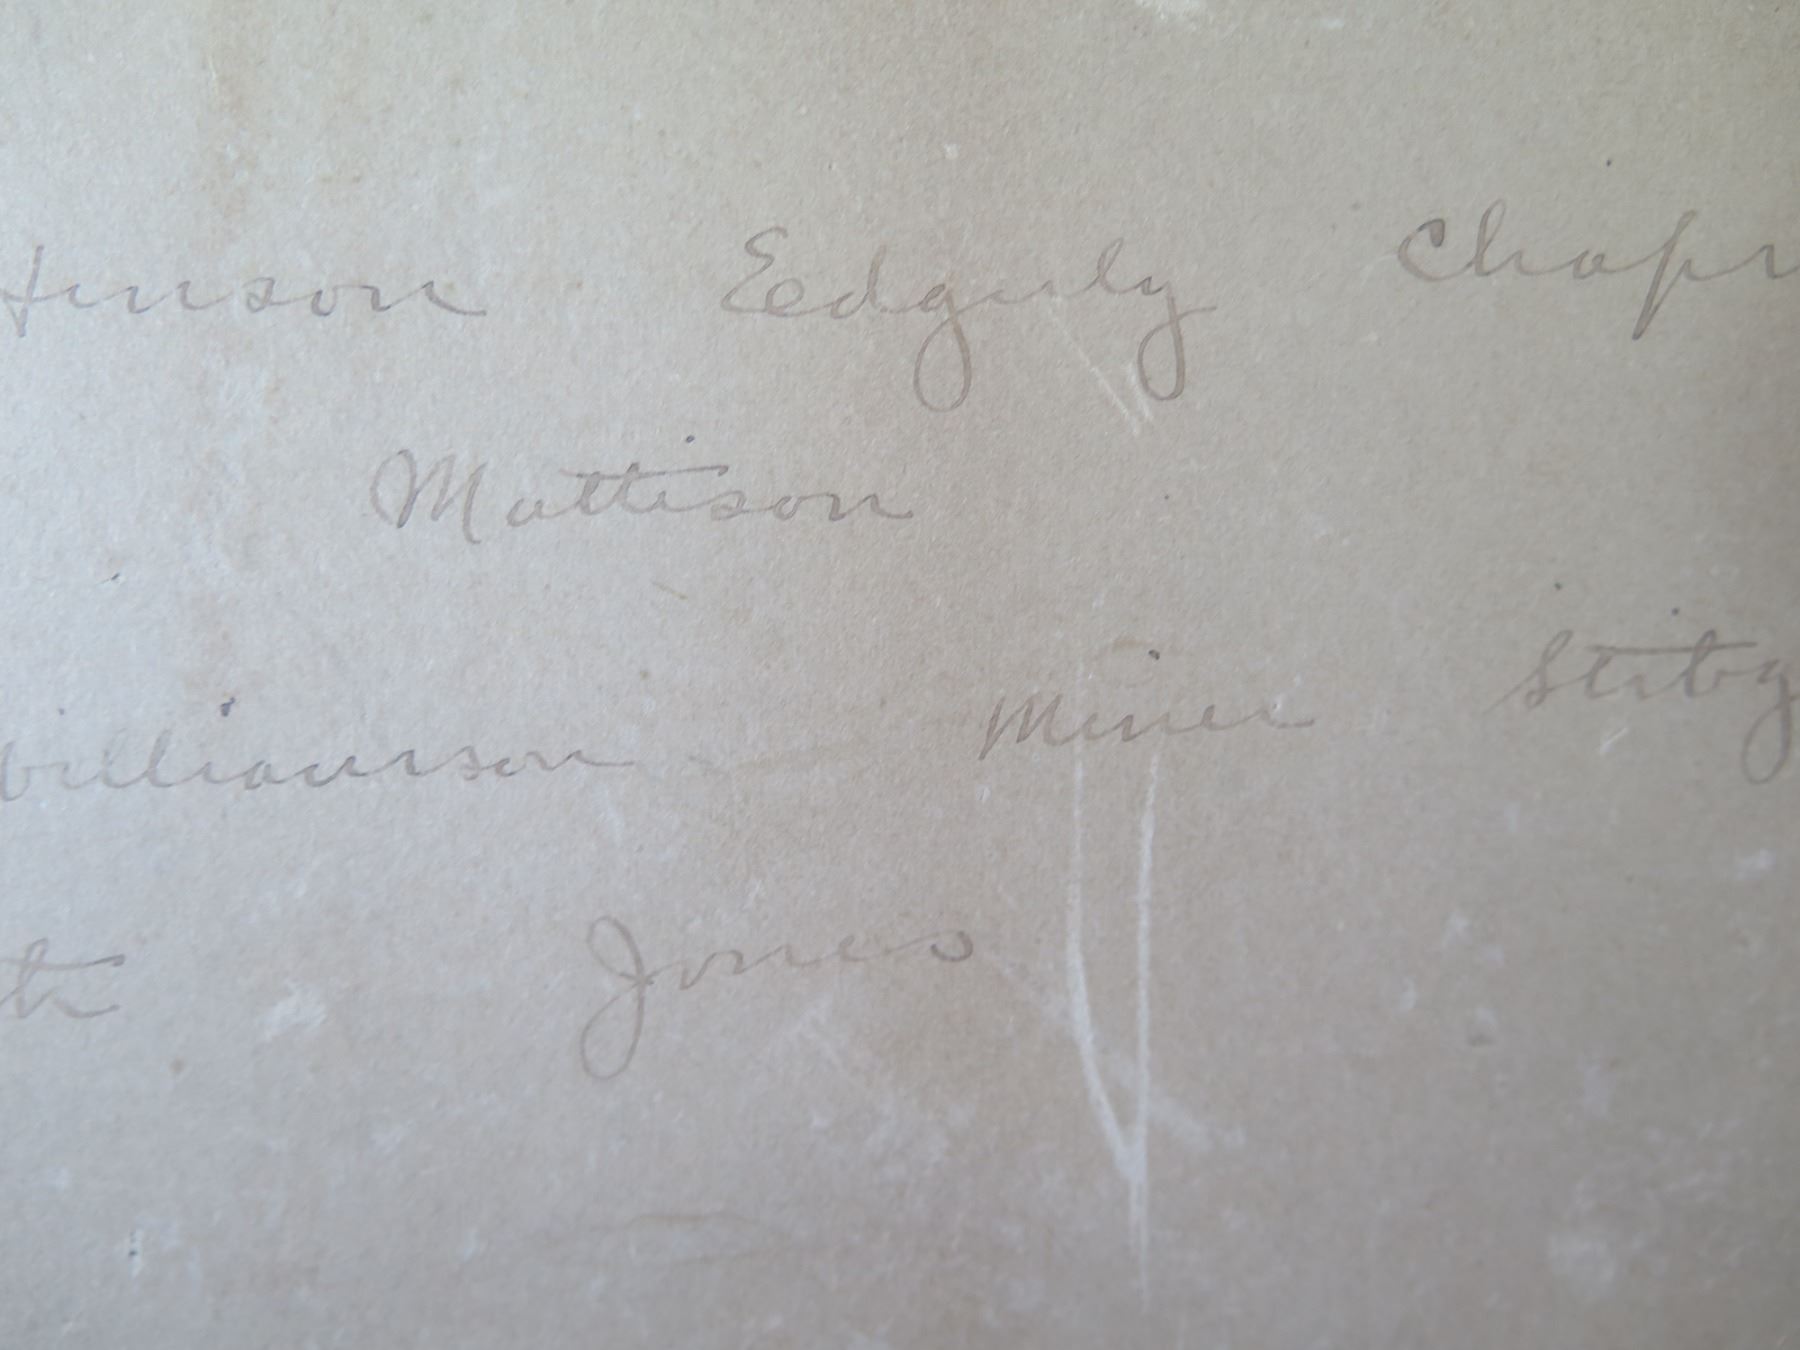 tinson Edgerly Chapr
Mattison
Williamson Miner Stiby
th Jones